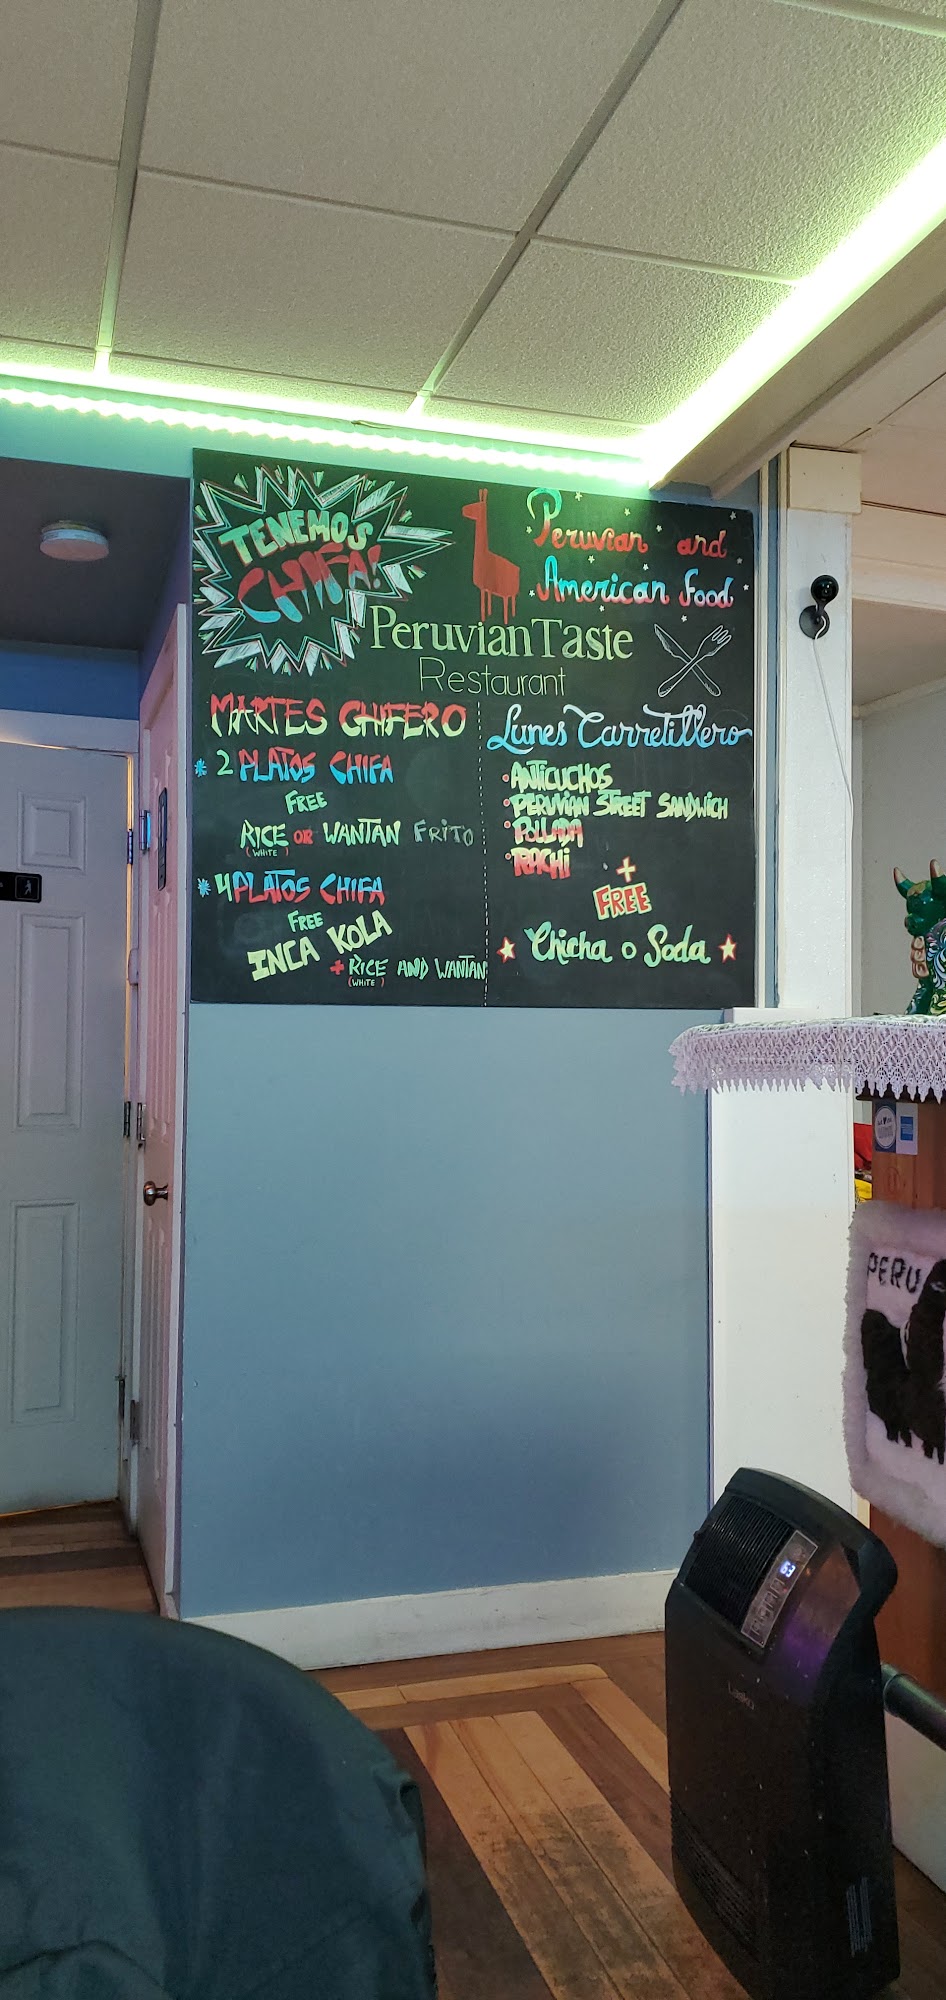 TENEMOS
CHIFA!
Peruvian and
American Food
Peruvian Taste
Restaurant
MARTES CHIFERO
2 PLATOS CHIFA
FREE
RICE OR WANTAN FRITO
(WHITE)
4 PLATOS CHIFA
FREE
INCA KOLA
+ RICE AND WANTAN
(WHITE)
Lunes Carretillero
ANTICUCHOS
PERUVIAN STREET SANDWICH
POLLADA
RACHI
+
FREE
Chicha o Soda
PERU
63
Lasko